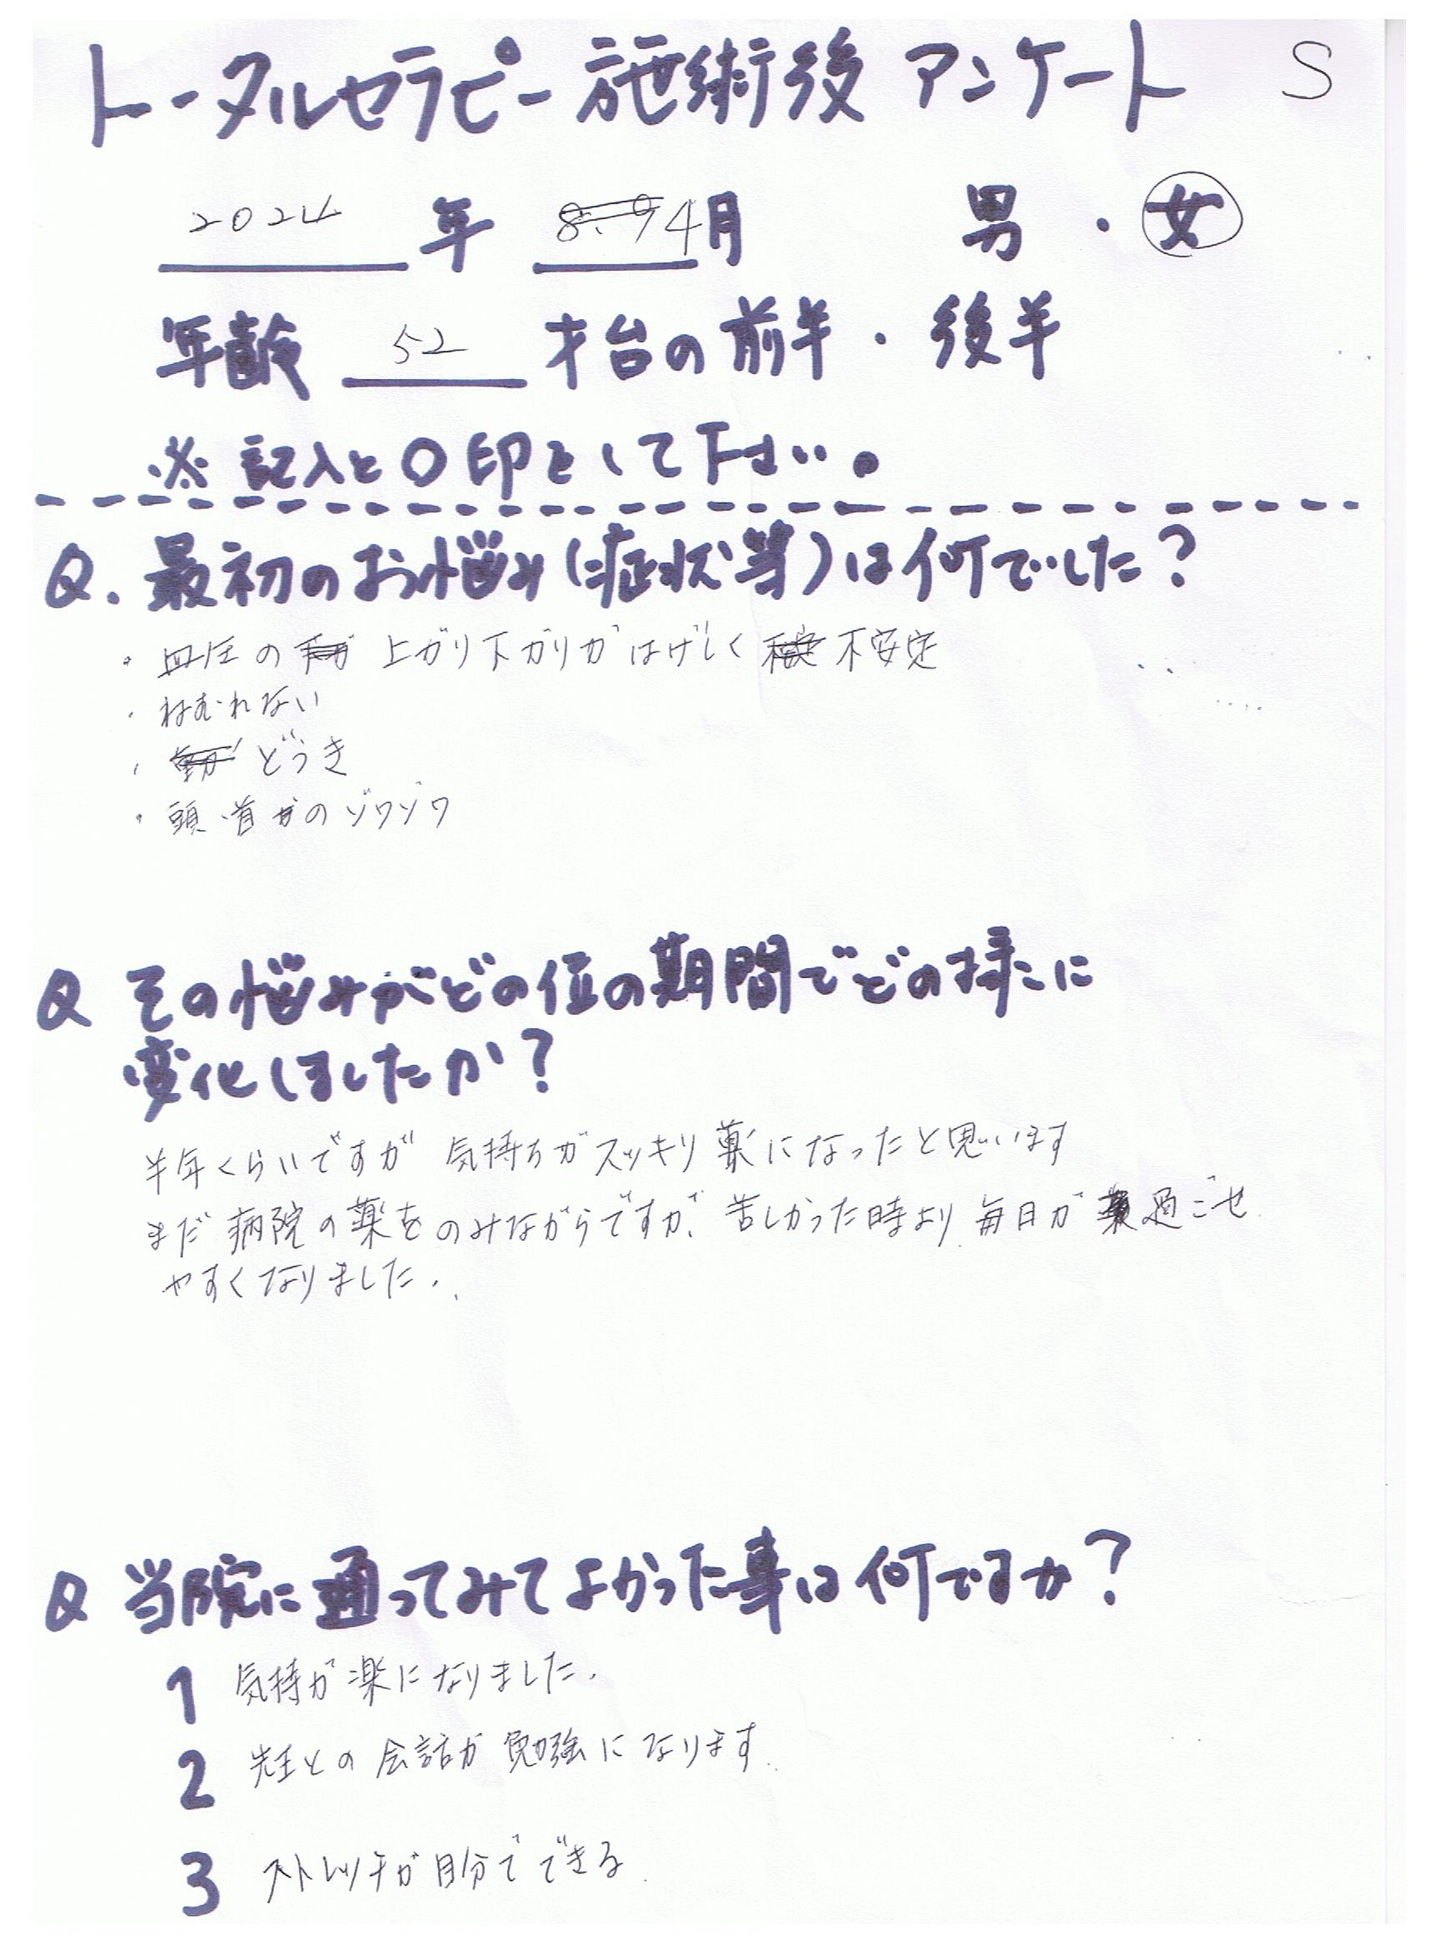 トータルセラピー施術後 アンケート S
2024 年 8.9 4月 男・女
年齢 52 才台の前半・後半
※ 記入と○印をして下さい。
Q. 最初のお悩み(症状等)は何でした?
・血圧の 上がり下がりがはげしく 不安定
・ねむれない
・どうき
・頭・首のゾワゾワ
Q その悩みがどの位の期間でどの様に
変化しましたか?
半年くらいですが 気持ちがスッキリ 楽になったと思います
まだ 病院の薬をのみながらですが、苦しかった時より 毎日が 過ごせ
やすくなりました。
Q 当院に通ってみてよかった事は何ですか?
1 気持が楽になりました。
2 先生との会話が勉強になります
3 ストレッチが自分でできる